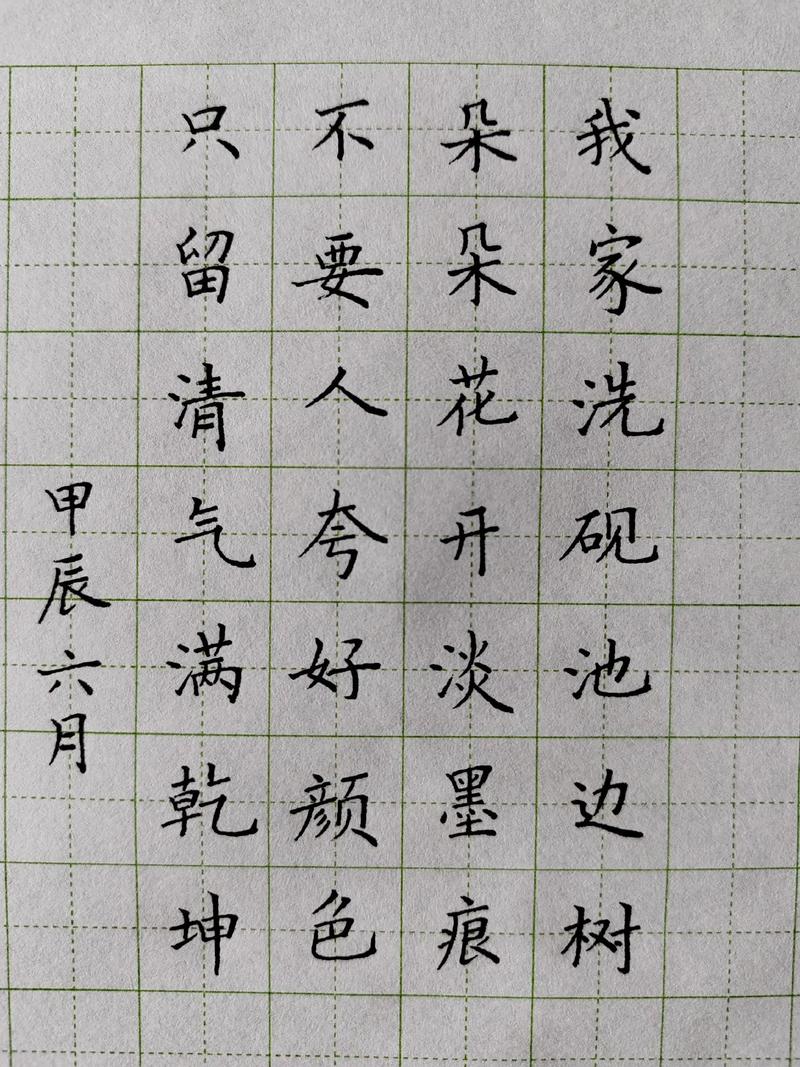 我家洗砚池边树
朵朵花开淡墨痕
不要人夸好颜色
只留清气满乾坤
甲辰六月